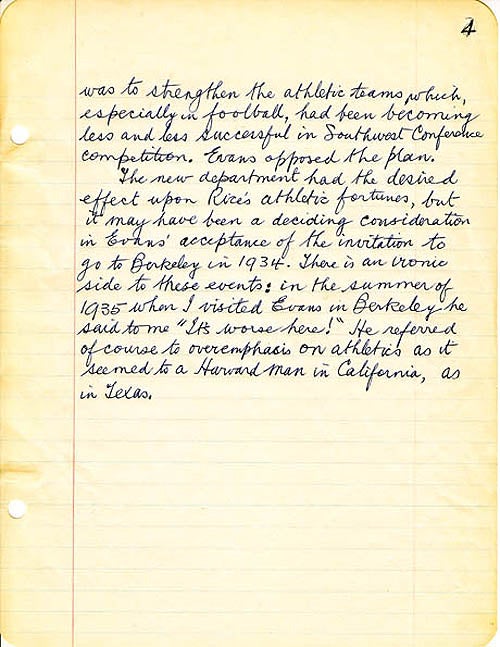 4
was to strengthen the athletic teams which,
especially in football, had been becoming
less and less successful in Southwest Conference
competition. Evans opposed the plan.
The new department had the desired
effect upon Rice's athletic fortunes, but
it may have been a deciding consideration
in Evans' acceptance of the invitation to
go to Berkeley in 1934. There is an ironic
side to these events: in the summer of
1935 when I visited Evans in Berkeley he
said to me "It's worse here!" He referred
of course to overemphasis on athletics as it
seemed to a Harvard man in California, as
in Texas.